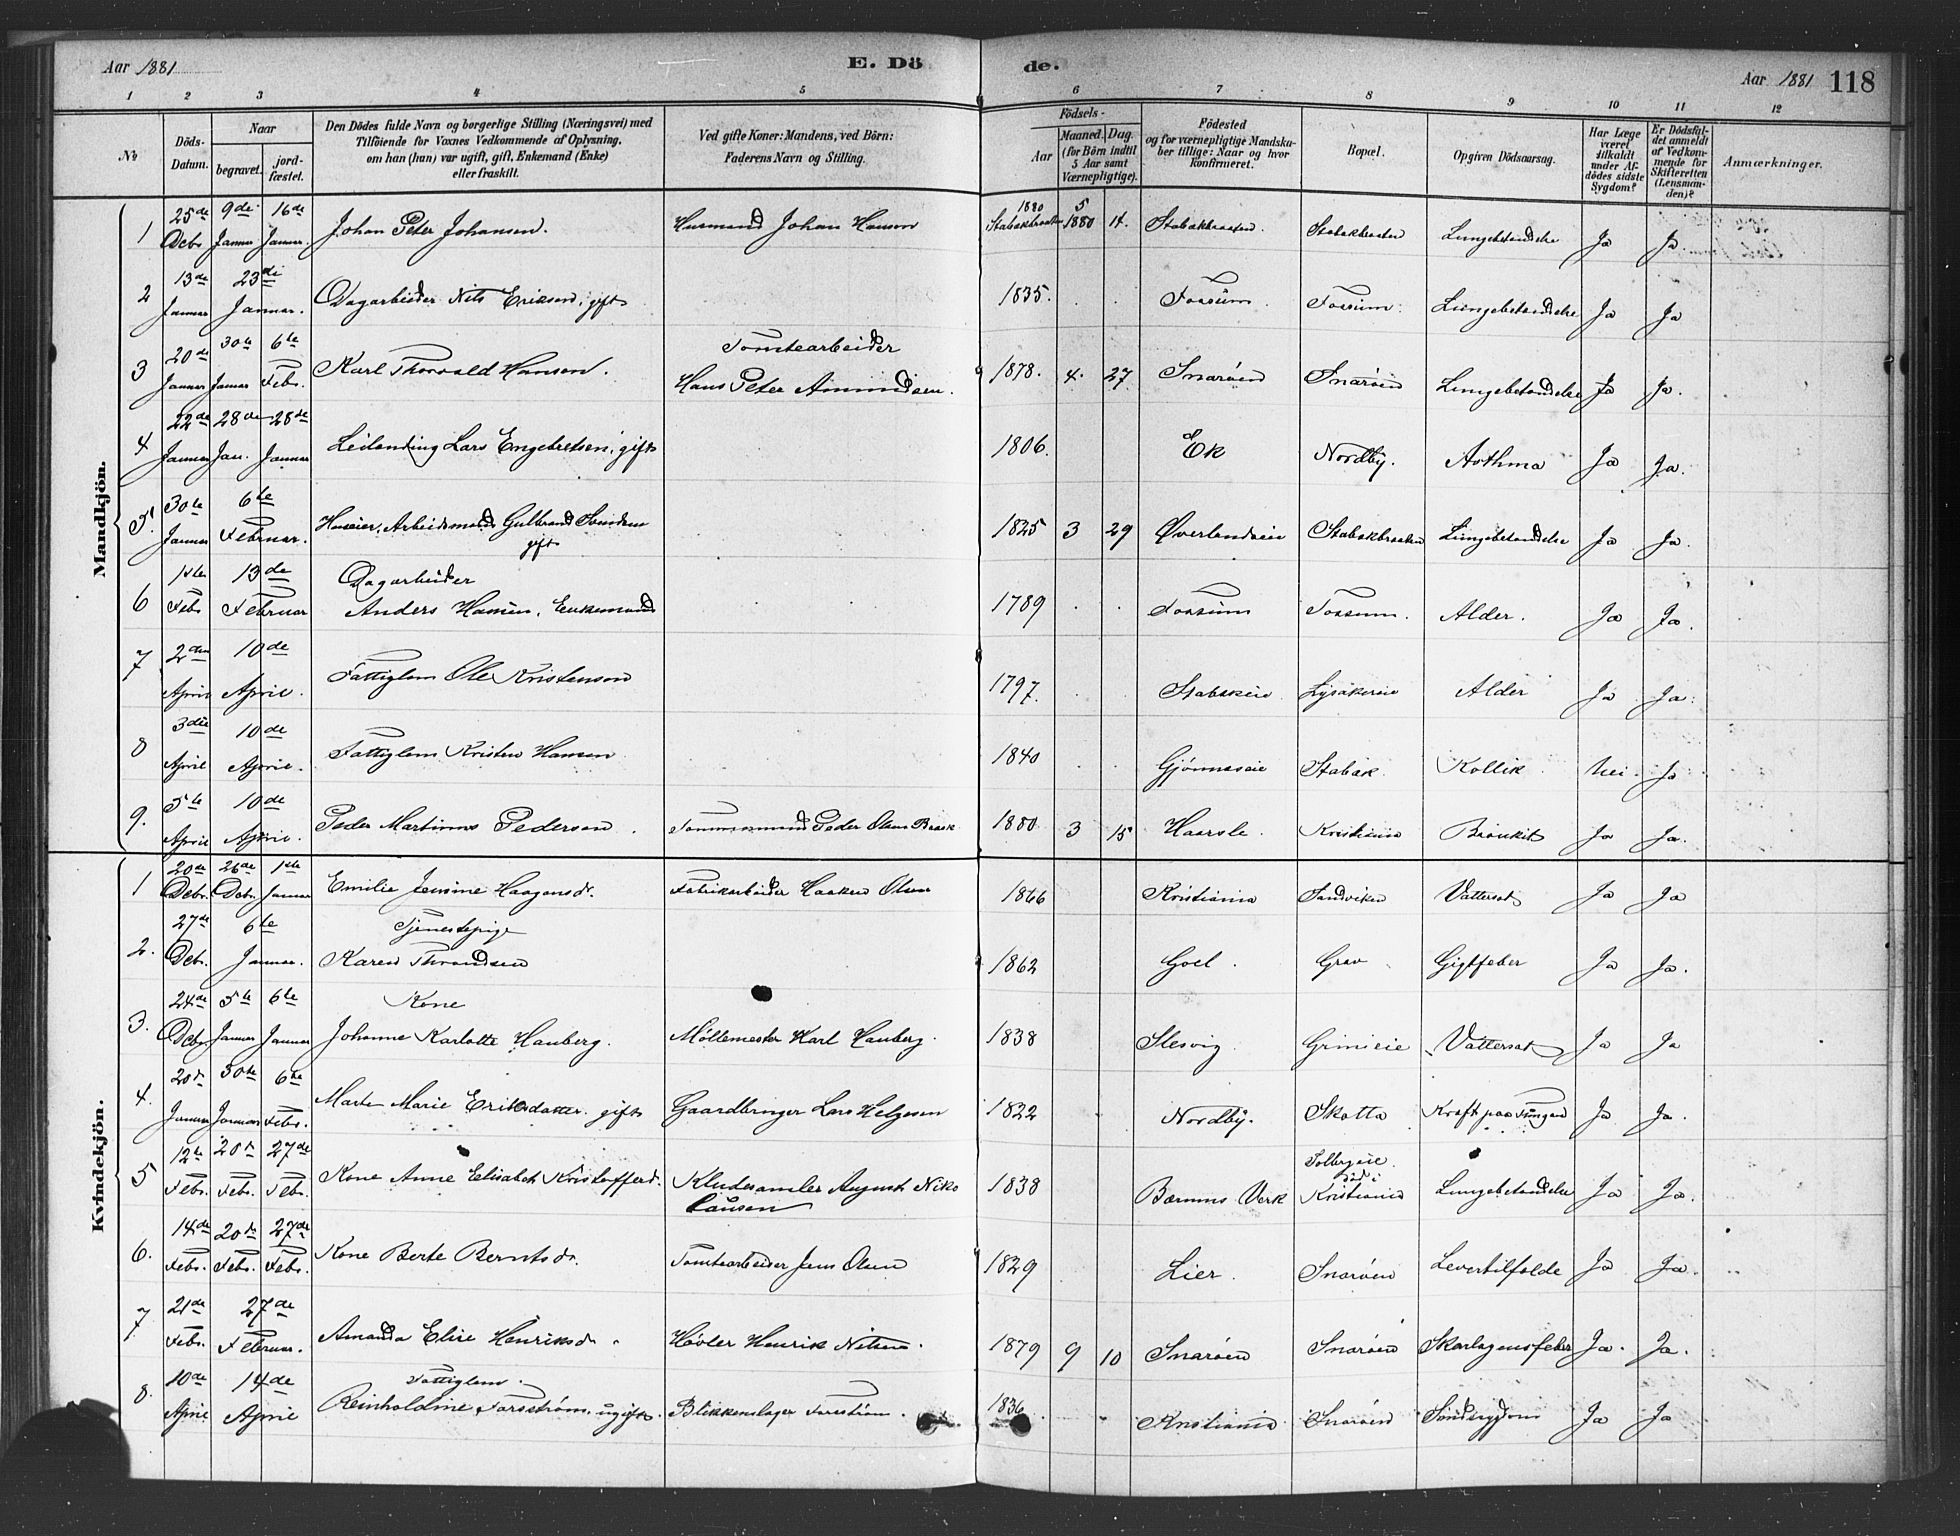 Aar 1881
E. Dö
de.
Aar 1881 118
1 2 3 4 5 6 7 8 9 10 11 12
No
Döds-Datum.
Naar
begravet.
jord-fæstet.
Den Dödes fulde Navn og borgerlige Stilling (Næringsvei) med
Tilföiende for Voxnes Vedkommende af Oplysning,
om han (hun) var ugift, gift, Enkemand (Enke)
eller fraskilt.
Ved gifte Koner: Mandens, ved Börn:
Faderens Navn og Stilling.
Födsels-
Aar
Maaned. Dag.
(for Börn indtil
5 Aar samt
Værnepligtige).
Födested
og for værnepligtige Mandska-
ber tillige: Naar og hvor
konfirmeret.
Bopæl.
Opgiven Dödsaarsag.
Har Læge
været
tilkaldt
under Af-
dödes sidste
Sygdom?
Er Dödsfal-
det anmeldt
af Vedkom-
mende for
Skifteretten
(Lensman-
den)?
Anmærkninger.
Mandkjön.
1 25de Debr. 9de Januar 16de Januar. Johan Peter Johansen. Husmand Johan Hansen Stabækbraaten 1880 1880 5 14. Stabækbraaten. Stabækbraaten Lungebetændelse Ja Ja
2 13de Januar 23di Januar. Dagarbeider Nils Eriksen, gift 1835. Fossum. Fossum. Lungebetændelse Ja Ja
3 20de Januar 30te Januar 6te Febr. Karl Thorvald Hansen. Tomtearbeider Hans Peter Amundsen. 1878. 4. 27. Snarøen Snarøen Lungebetændelse Ja Ja.
4 22de Januar 28de Jan. 28de Januar Leilending Lars Engebretsen, gift 1806. Ek Nordby. Asthma Ja Ja.
5 30te Januar 6te Februar. Huseier, Arbeidsmand Gulbrand Svendsen gift 1825 3 29 Øverlandseie Stabækbraaten Lungebetændelse Ja Ja.
6 1ste Febr 13de Februar Dagarbeider Anders Hansen, Enkemand 1789 Fossum Fossum. Alder. Ja Ja.
7 2den April 10de April. Fattiglem Ole Kristenson 1797. Stabækeie Lysakereie Alder Ja Ja.
8 3die April 10de April. Fattiglem Kristen Hansen 1840 Gjønneseie Stabæk Kollik. Nei. Ja
9. 5te April 10de April. Peder Martinus Pedersen. Tømmermand Peder Olsen Braek 1880 3 15 Haarsle. Kristiania Bronkit Ja Ja.
Kvindekjön.
1 20de Debr. 26de Debr. 1ste Januar Emilie Jensine Haagensdr. Fabrikarbeider Haaken Olsen 1866 Kristiania Sandviken Vattersot Ja Ja
2. 27de Debr. 6te Januar. Tjenestepige Karen Throndsen 1862 Goel. Grav Gigtfeber Ja Ja.
3. 24de Debr. 5te Januar 6te Januar Kone Johanne Karlotte Hauberg. Møllemester Karl Hauberg. 1838 Slesvig. Grinieie Vattersot Ja Ja
4. 20de Januar 30te Januar 6te Febr. Marte Marie Eriksdatter gift Gaardbruger Lars Helgesen 1822 Nordby. Skotta Kræft paa Tungen Ja Ja.
5 12te Febr. 20de Febr. 27de Febr. Kone Anne Elisabet Kristoffersd. Kludesamler August Nikolausen 1838 Bærums Verk Solbergeie. død i Kristiania Lungebetændelse Ja Ja.
6. 14de Febr. 20de Febr. 27de Febr. Kone Berte Berntsdr. Tomtearbeider Jens Olsen 1829 Lier. Snarøen Levertilfælde Ja Ja.
7. 21de Febr. 27de Februar. Amanda Elise Henriksdr. Høvler Henrik Nilsen. 1879 9 10 Snarøen Snarøen Skarlagensfeber Ja. Ja.
8. 10de April 14de April Fattiglem. Reinholdine Forsstrøm, ugift. Blikkenslager Forsstrøm. 1836 Kristiania Snarøen Sindssygdom Ja Ja